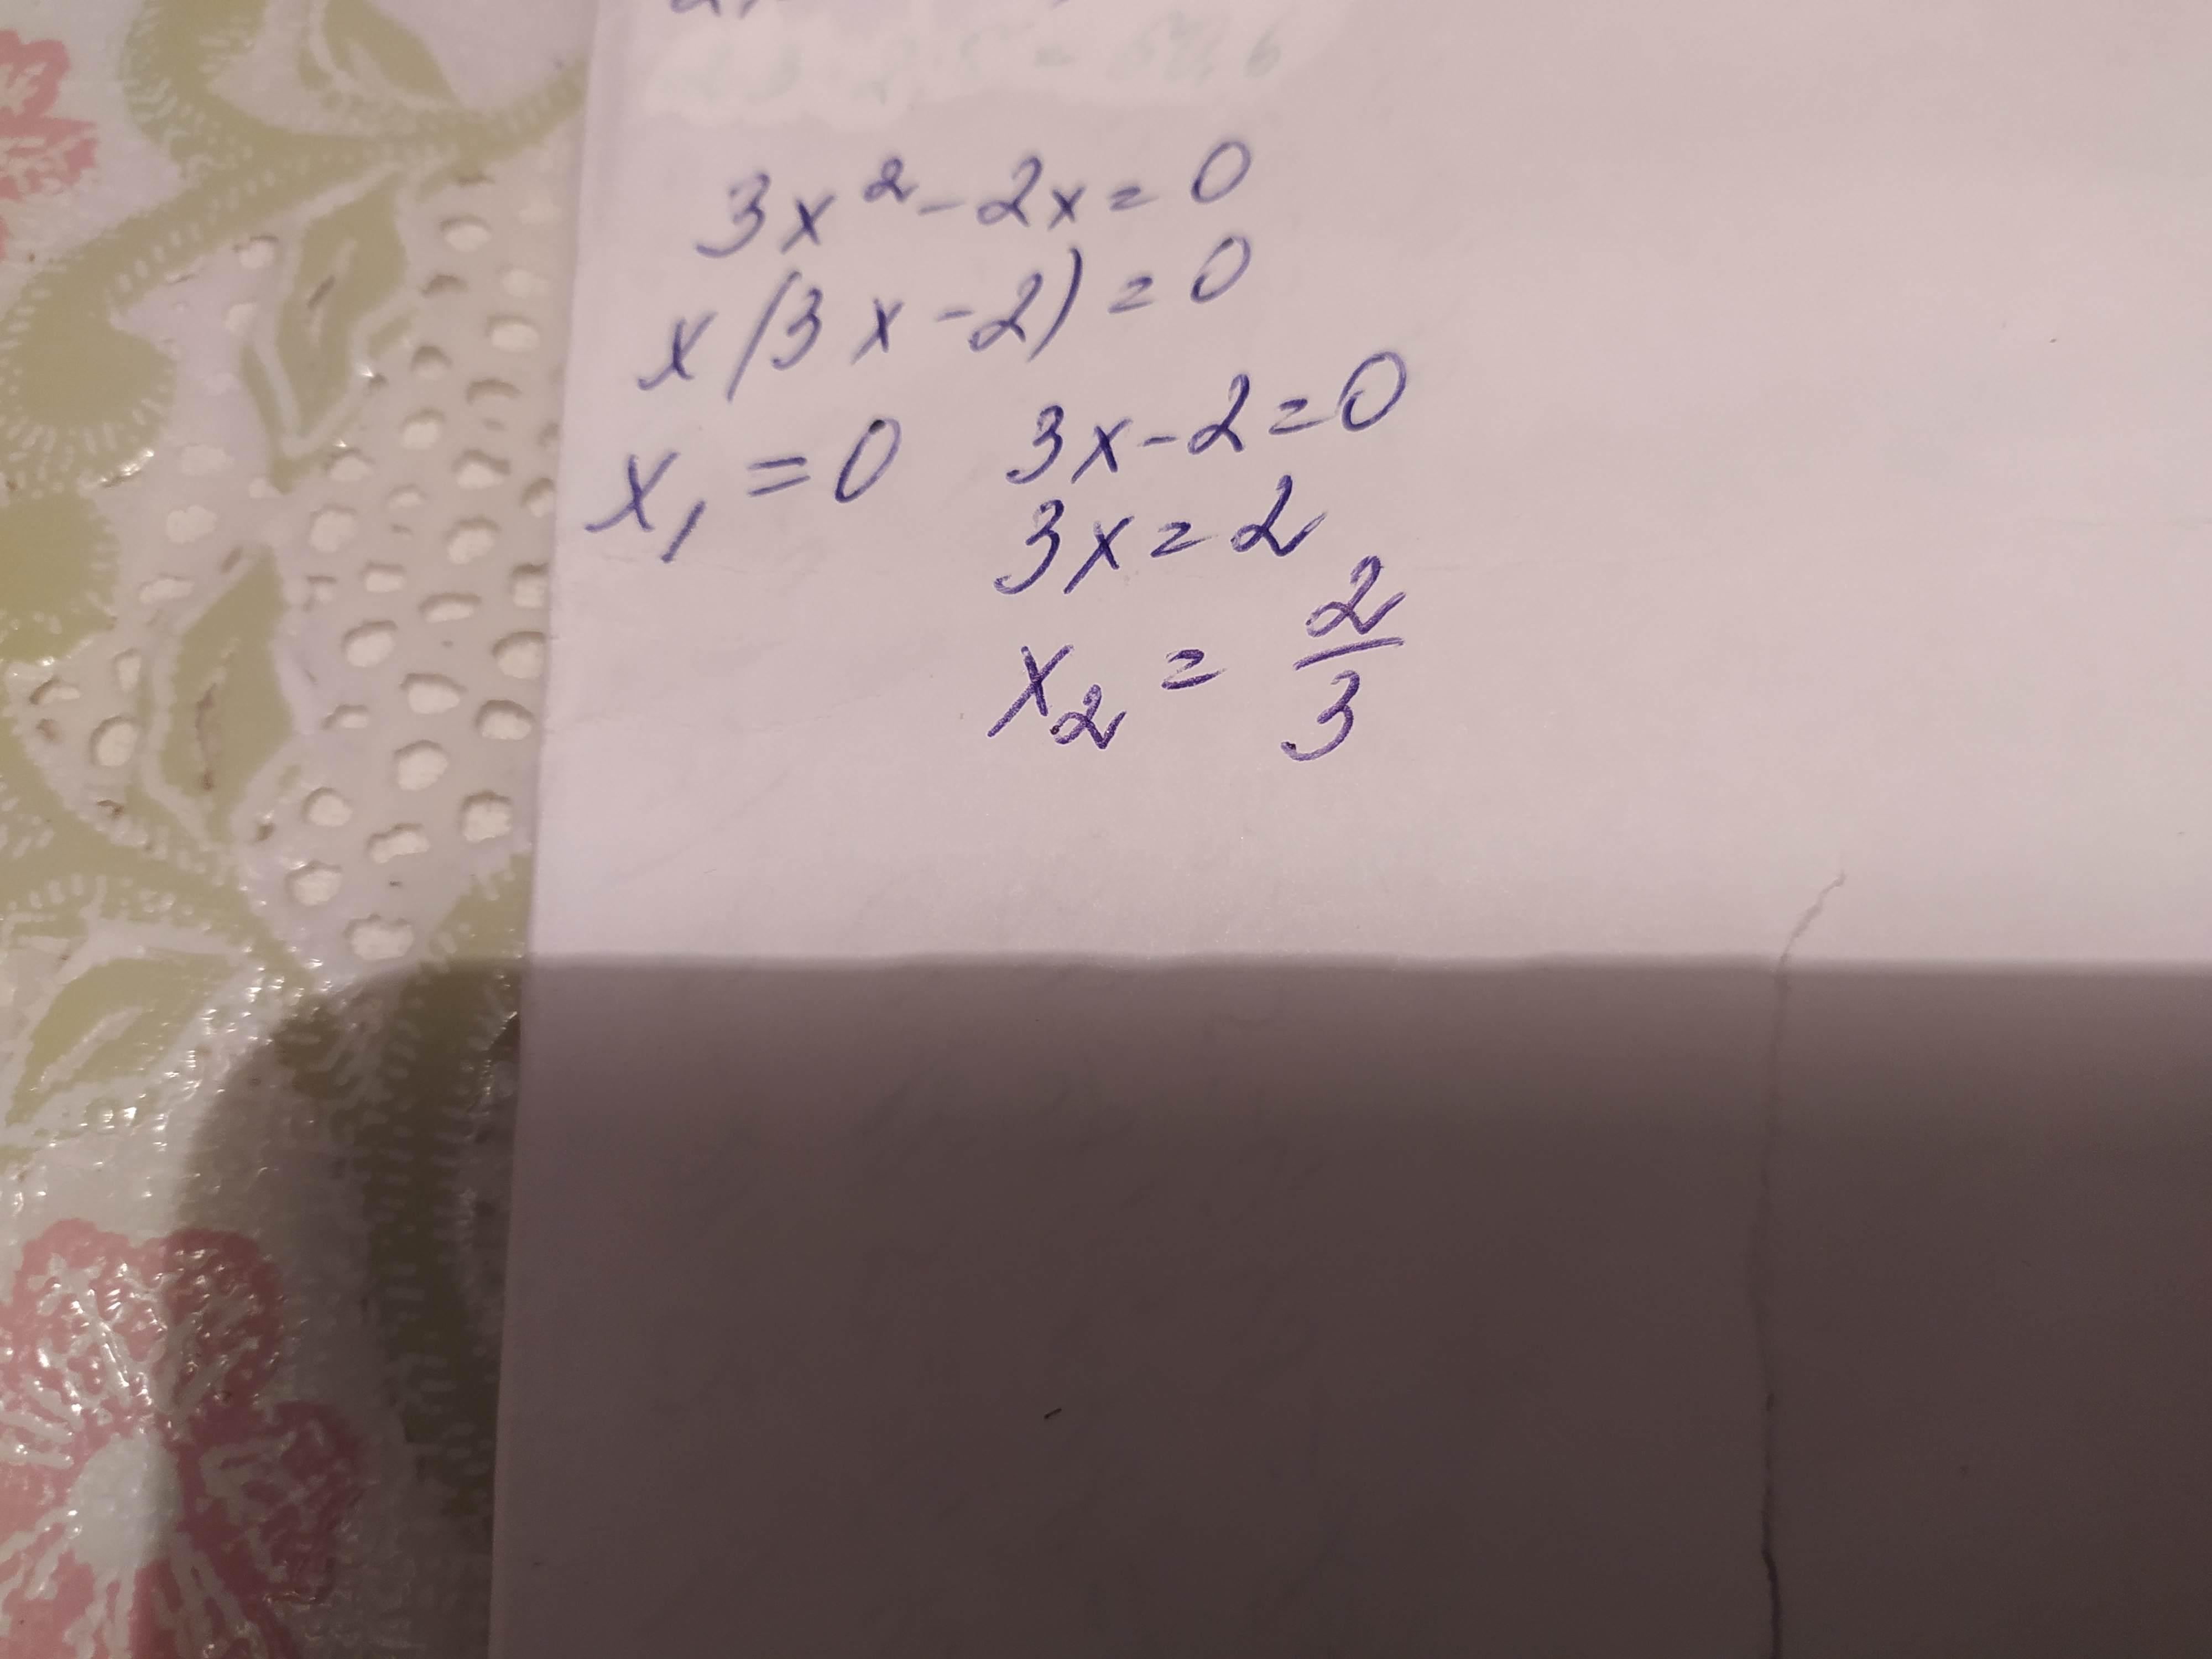 3x² - 2x = 0
x(3x - 2) = 0
x₁ = 0 3x - 2 = 0
3x = 2
x₂ = 2/3